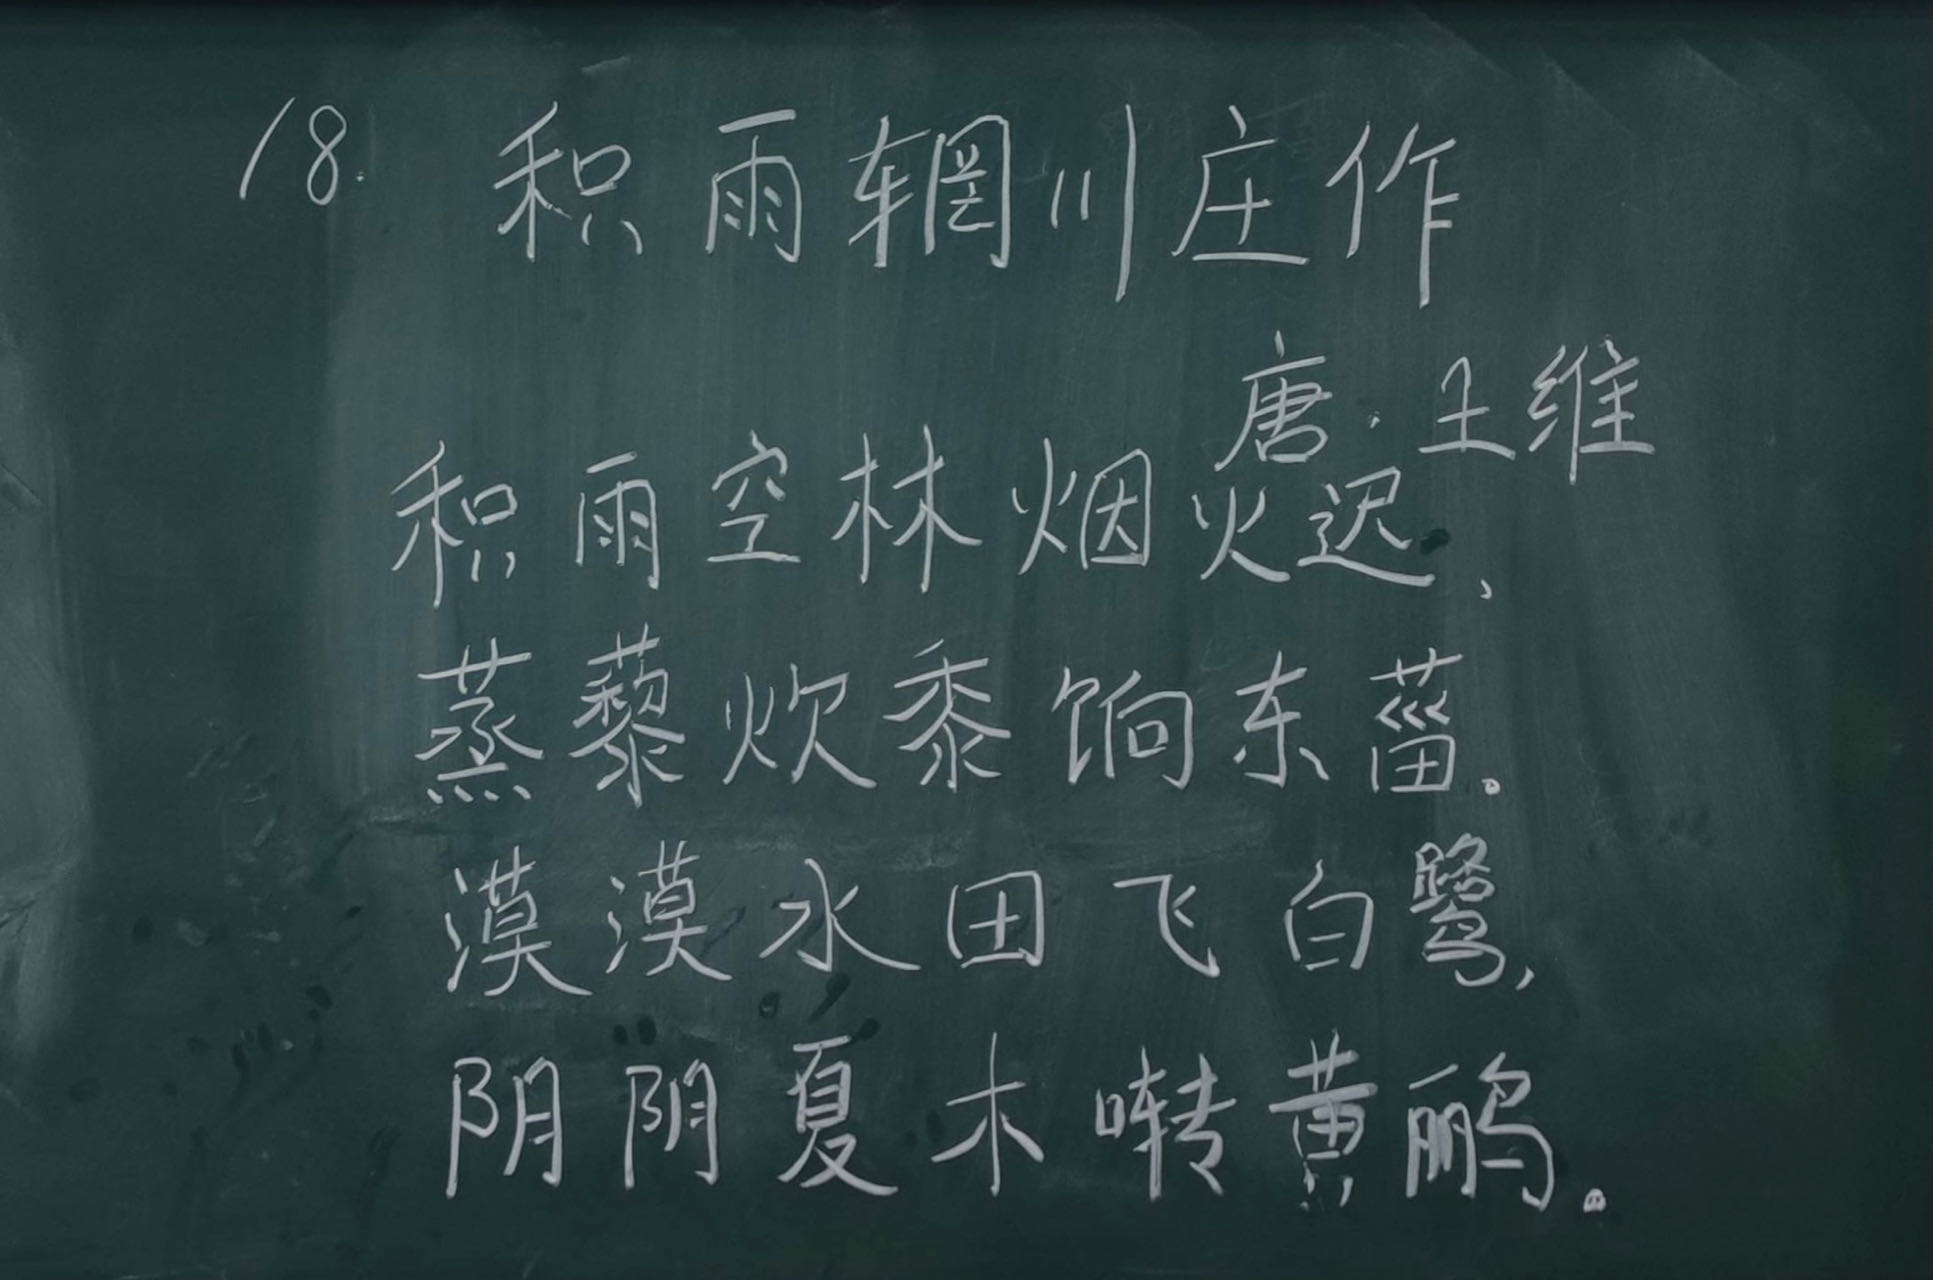 18. 积雨辋川庄作
唐·王维
积雨空林烟火迟,
蒸藜炊黍饷东菑。
漠漠水田飞白鹭,
阴阴夏木啭黄鹂。